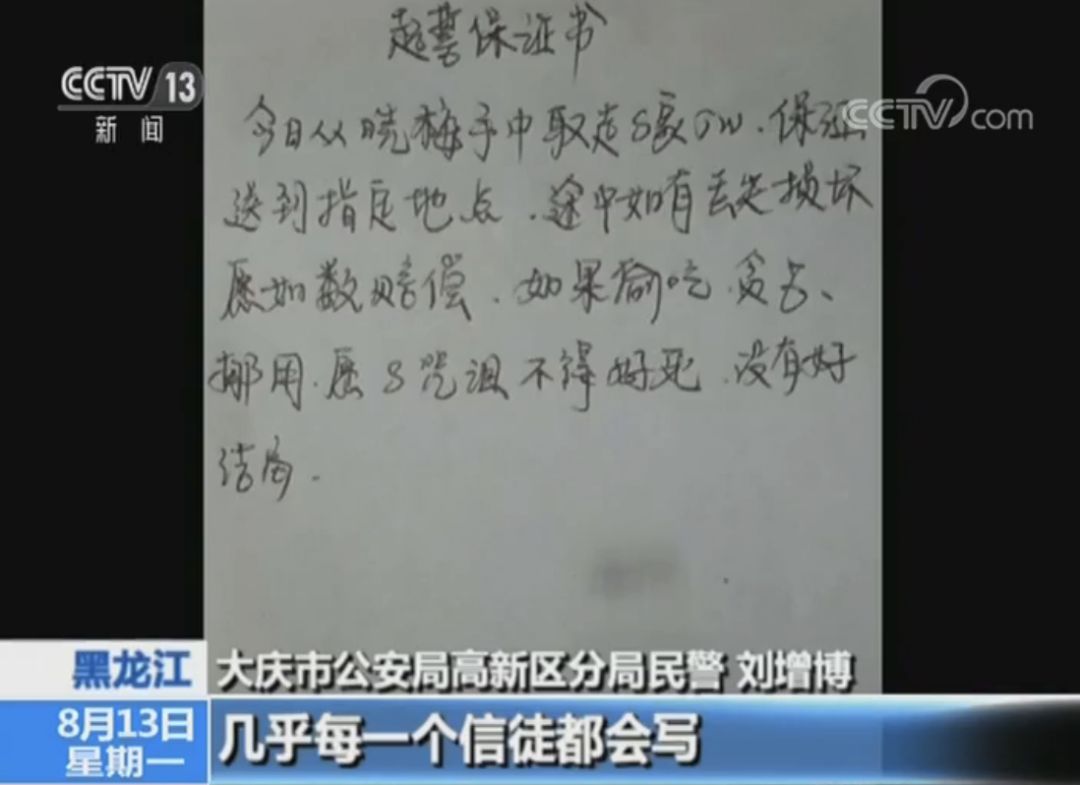 起誓保证书
CCTV 13
新闻
CCTV.com
今日从晓梅手中取走S家5W、保证
送到指定地点、途中如有丢失损坏
愿如数赔偿、如果偷吃、贪占、
挪用、愿S咒诅不得好死、没有好
结局.
黑龙江
大庆市公安局高新区分局民警 刘增博
8月13日
星期一
几乎每一个信徒都会写